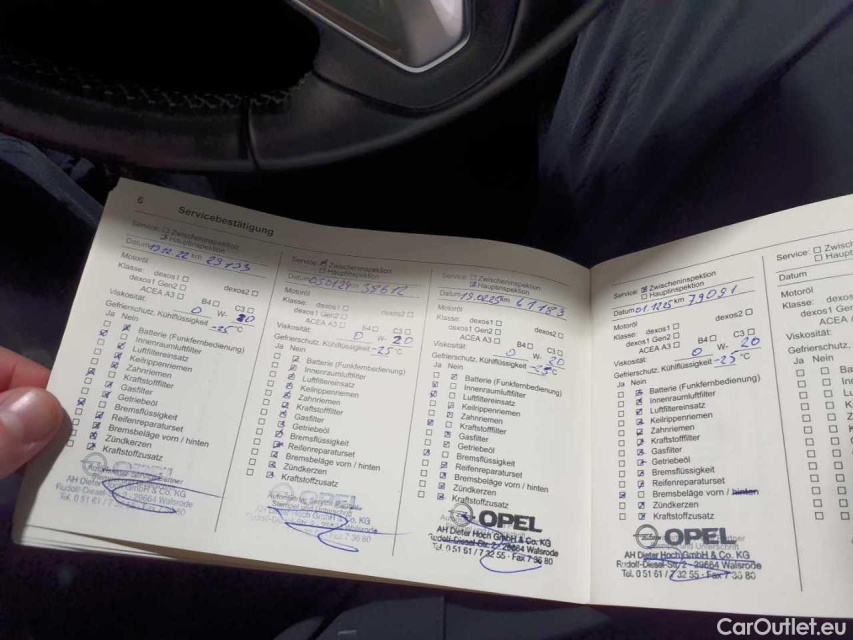 6
Servicebestätigung
Service: Zwischeninspektion
Hauptinspektion
Datum 19.12.22 km 29133
Motoröl
Klasse: dexos1 dexos2
dexos1 Gen2 B4 C3
ACEA A3
Viskosität: 0 W- 20
Gefrierschutz, Kühlflüssigkeit -25 °C
Ja Nein
Batterie (Funkfernbedienung)
Innenraumluftfilter
Luftfiltereinsatz
Keilrippenriemen
Zahnriemen
Kraftstofffilter
Gasfilter
Getriebeöl
Bremsflüssigkeit
Reifenreparaturset
Bremsbeläge vorn / hinten
Zündkerzen
Kraftstoffzusatz
AH Dieter Hoch GmbH & Co. KG
Rudolf-Diesel-Str. 2 - 29664 Walsrode
Tel. 0 51 61 / 7 32 55
Service: Zwischeninspektion
Hauptinspektion
Datum km
Motoröl
Klasse: dexos1 dexos2
dexos1 Gen2 B4 C3
ACEA A3
Viskosität: 0 W- 20
Gefrierschutz, Kühlflüssigkeit -25 °C
Ja Nein
Batterie (Funkfernbedienung)
Innenraumluftfilter
Luftfiltereinsatz
Keilrippenriemen
Zahnriemen
Kraftstofffilter
Gasfilter
Getriebeöl
Bremsflüssigkeit
Reifenreparaturset
Bremsbeläge vorn / hinten
Zündkerzen
Kraftstoffzusatz
OPEL
Service: Zwischeninspektion
Hauptinspektion
Datum 19.02.25 km 61183
Motoröl
Klasse: dexos1 dexos2
dexos1 Gen2 B4 C3
ACEA A3
Viskosität: 0 W- 20
Gefrierschutz, Kühlflüssigkeit -25 °C
Ja Nein
Batterie (Funkfernbedienung)
Innenraumluftfilter
Luftfiltereinsatz
Keilrippenriemen
Zahnriemen
Kraftstofffilter
Gasfilter
Getriebeöl
Bremsflüssigkeit
Reifenreparaturset
Bremsbeläge vorn / hinten
Zündkerzen
Kraftstoffzusatz
OPEL
AH Dieter Hoch GmbH & Co. KG
Rudolf-Diesel-Str. 2 - 29664 Walsrode
Tel. 0 51 61 / 7 32 55 - Fax 7 36 80
Service: Zwischeninspektion
Hauptinspektion
Datum 01.12.25 km 79091
Motoröl
Klasse: dexos1 dexos2
dexos1 Gen2 B4 C3
ACEA A3
Viskosität: 0 W- 20
Gefrierschutz, Kühlflüssigkeit -25 °C
Ja Nein
Batterie (Funkfernbedienung)
Innenraumluftfilter
Luftfiltereinsatz
Keilrippenriemen
Zahnriemen
Kraftstofffilter
Gasfilter
Getriebeöl
Bremsflüssigkeit
Reifenreparaturset
Bremsbeläge vorn / hinten
Zündkerzen
Kraftstoffzusatz
OPEL
AH Dieter Hoch GmbH & Co. KG
Rudolf-Diesel-Str. 2 - 29664 Walsrode
Tel. 0 51 61 / 7 32 55 - Fax 7 36 80
Service:
Datum
Motoröl
Klasse:
Viskosität:
Gefrierschutz,
Ja Nein
CarOutlet.eu